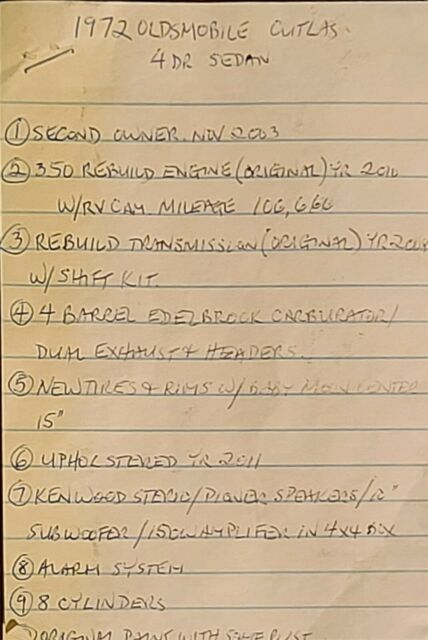 1972 OLDSMOBILE CUTLAS
4 DR SEDAN
① SECOND OWNER. NOV 2003
② 350 REBUILD ENGINE (ORIGINAL) YR 2010
W/RV CAM. MILEAGE 106,666
③ REBUILD TRANSMISSION (ORIGINAL) YR
W/ SHIFT KIT.
④ 4 BARREL EDELBROCK CARBURATOR/
DUAL EXHAUST & HEADERS.
⑤ NEW TIRES & RIMS W/ BABY MOON CENTER
15"
⑥ UPHOLSTERED YR 2011
⑦ KENWOOD STEREO/PIONER SPEAKERS/
SUBWOOFER / AMPLIFER IN 4X4 BOX
⑧ ALARM SYSTEM
⑨ 8 CYLINDERS
ORIGINAL PAINT WITH SOME RUST